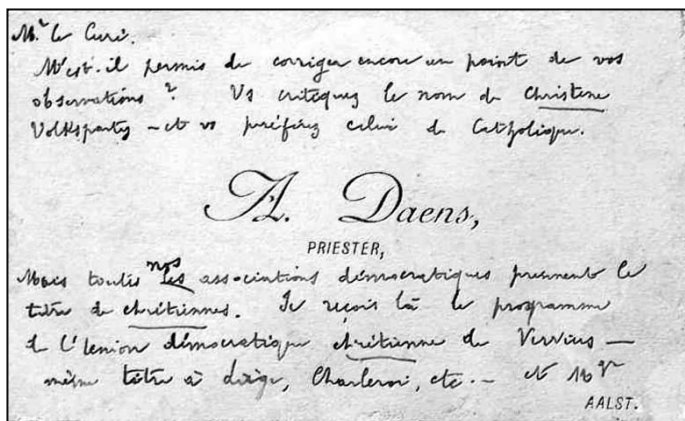 Mr le Curé.
M'est-il permis de corriger encore un point de vos
observations? Vs critiquez le nom de Christene
Volksparty – et vs préférez celui de Catholique.
A. Daens,
PRIESTER,
Mais toutes nos associations démocratiques prennent le
titre de chrétiennes. Je reçois là le programme
de l'Union démocratique chrétienne de Verviers –
même titre à Liège, Charleroi, etc. – et Mgr
AALST.